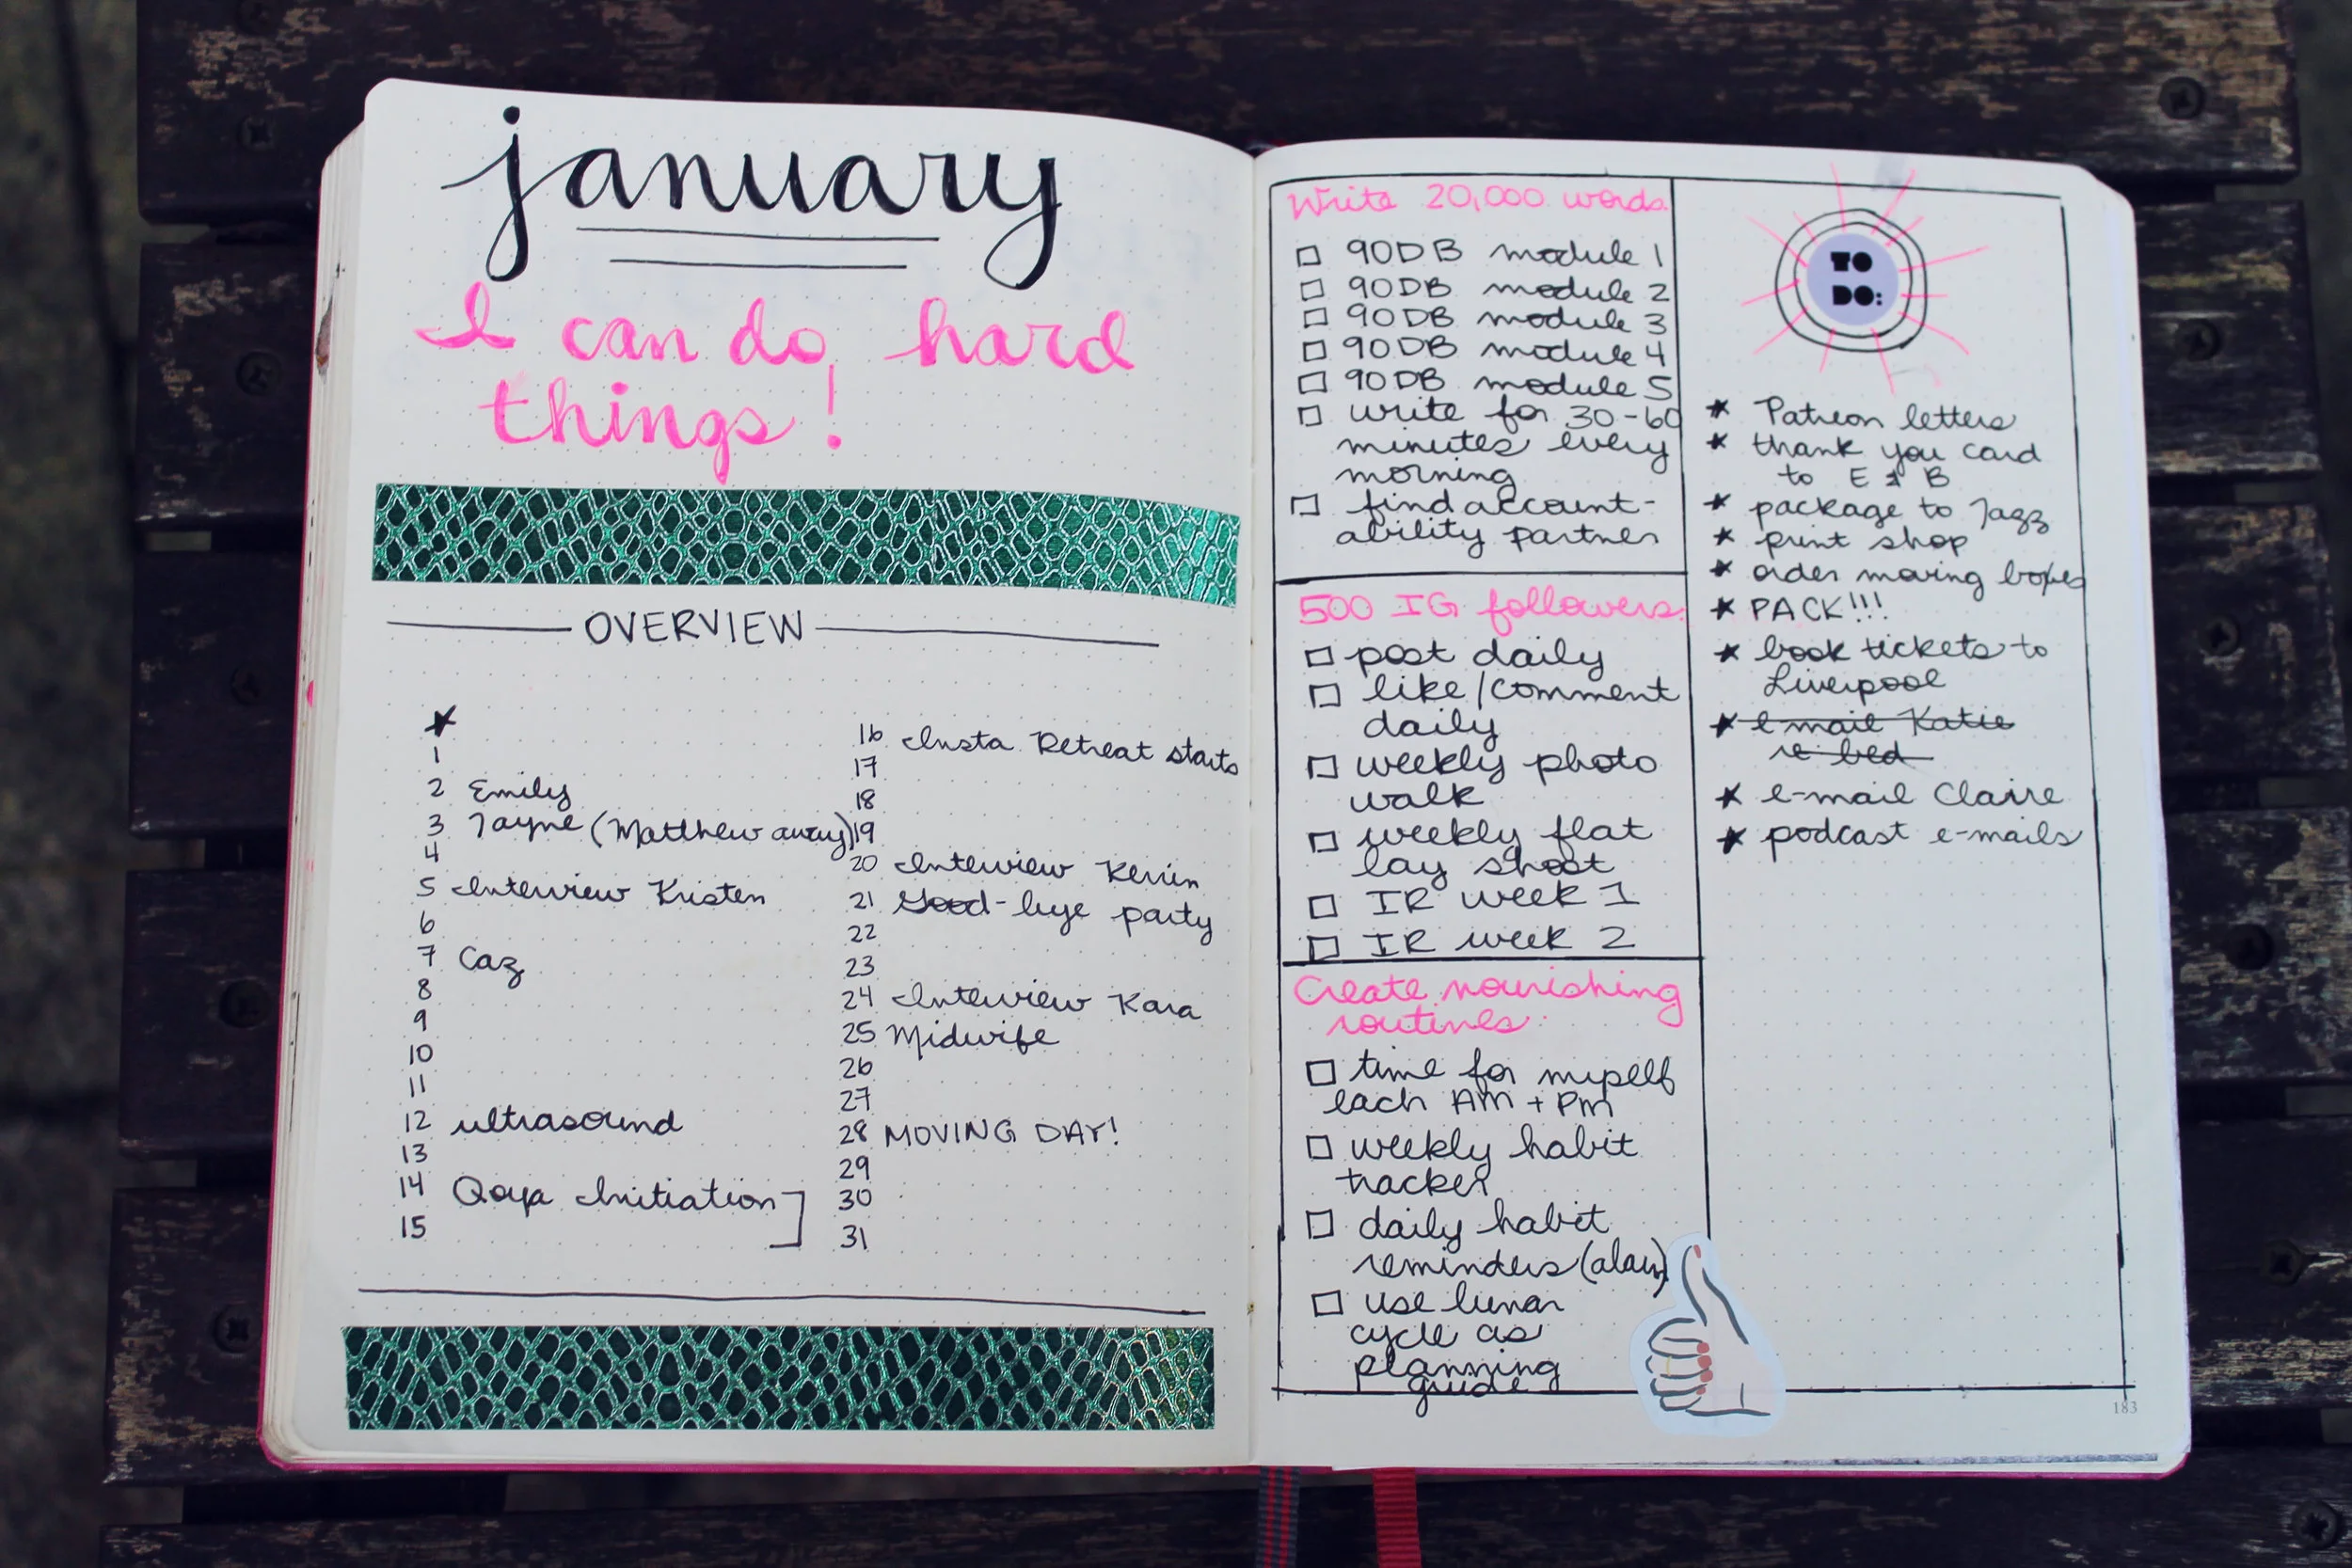 january
I can do hard
things!
OVERVIEW
1
2 Emily
3 Jayne (Matthew away)
4
5 Interview Kristen
6
7 Caz
8
9
10
11
12 ultrasound
13
14 Qoya Initiation
15
16 Insta Retreat starts
17
18
19
20 Interview Kerrin
21 Good-bye party
22
23
24 Interview Kara
25 Midwife
26
27
28 MOVING DAY!
29
30
31
Write 20,000 words.
90DB module 1
90DB module 2
90DB module 3
90DB module 4
90DB module 5
write for 30-60
minutes every
morning
find account-
ability partner
500 IG followers:
post daily
like/comment
daily
weekly photo
walk
weekly flat
lay shoot
IR week 1
IR week 2
Create nourishing
routines:
time for myself
each AM + PM
weekly habit
tracker
daily habit
reminders (alarm)
use lunar
cycle as
planning
guide
TO
DO:
Patreon letters
thank you card
to E & B
package to Jazz
print shop
order moving boxes
PACK!!!
book tickets to
Liverpool
e-mail Katie
re bed
e-mail Claire
podcast e-mails
183